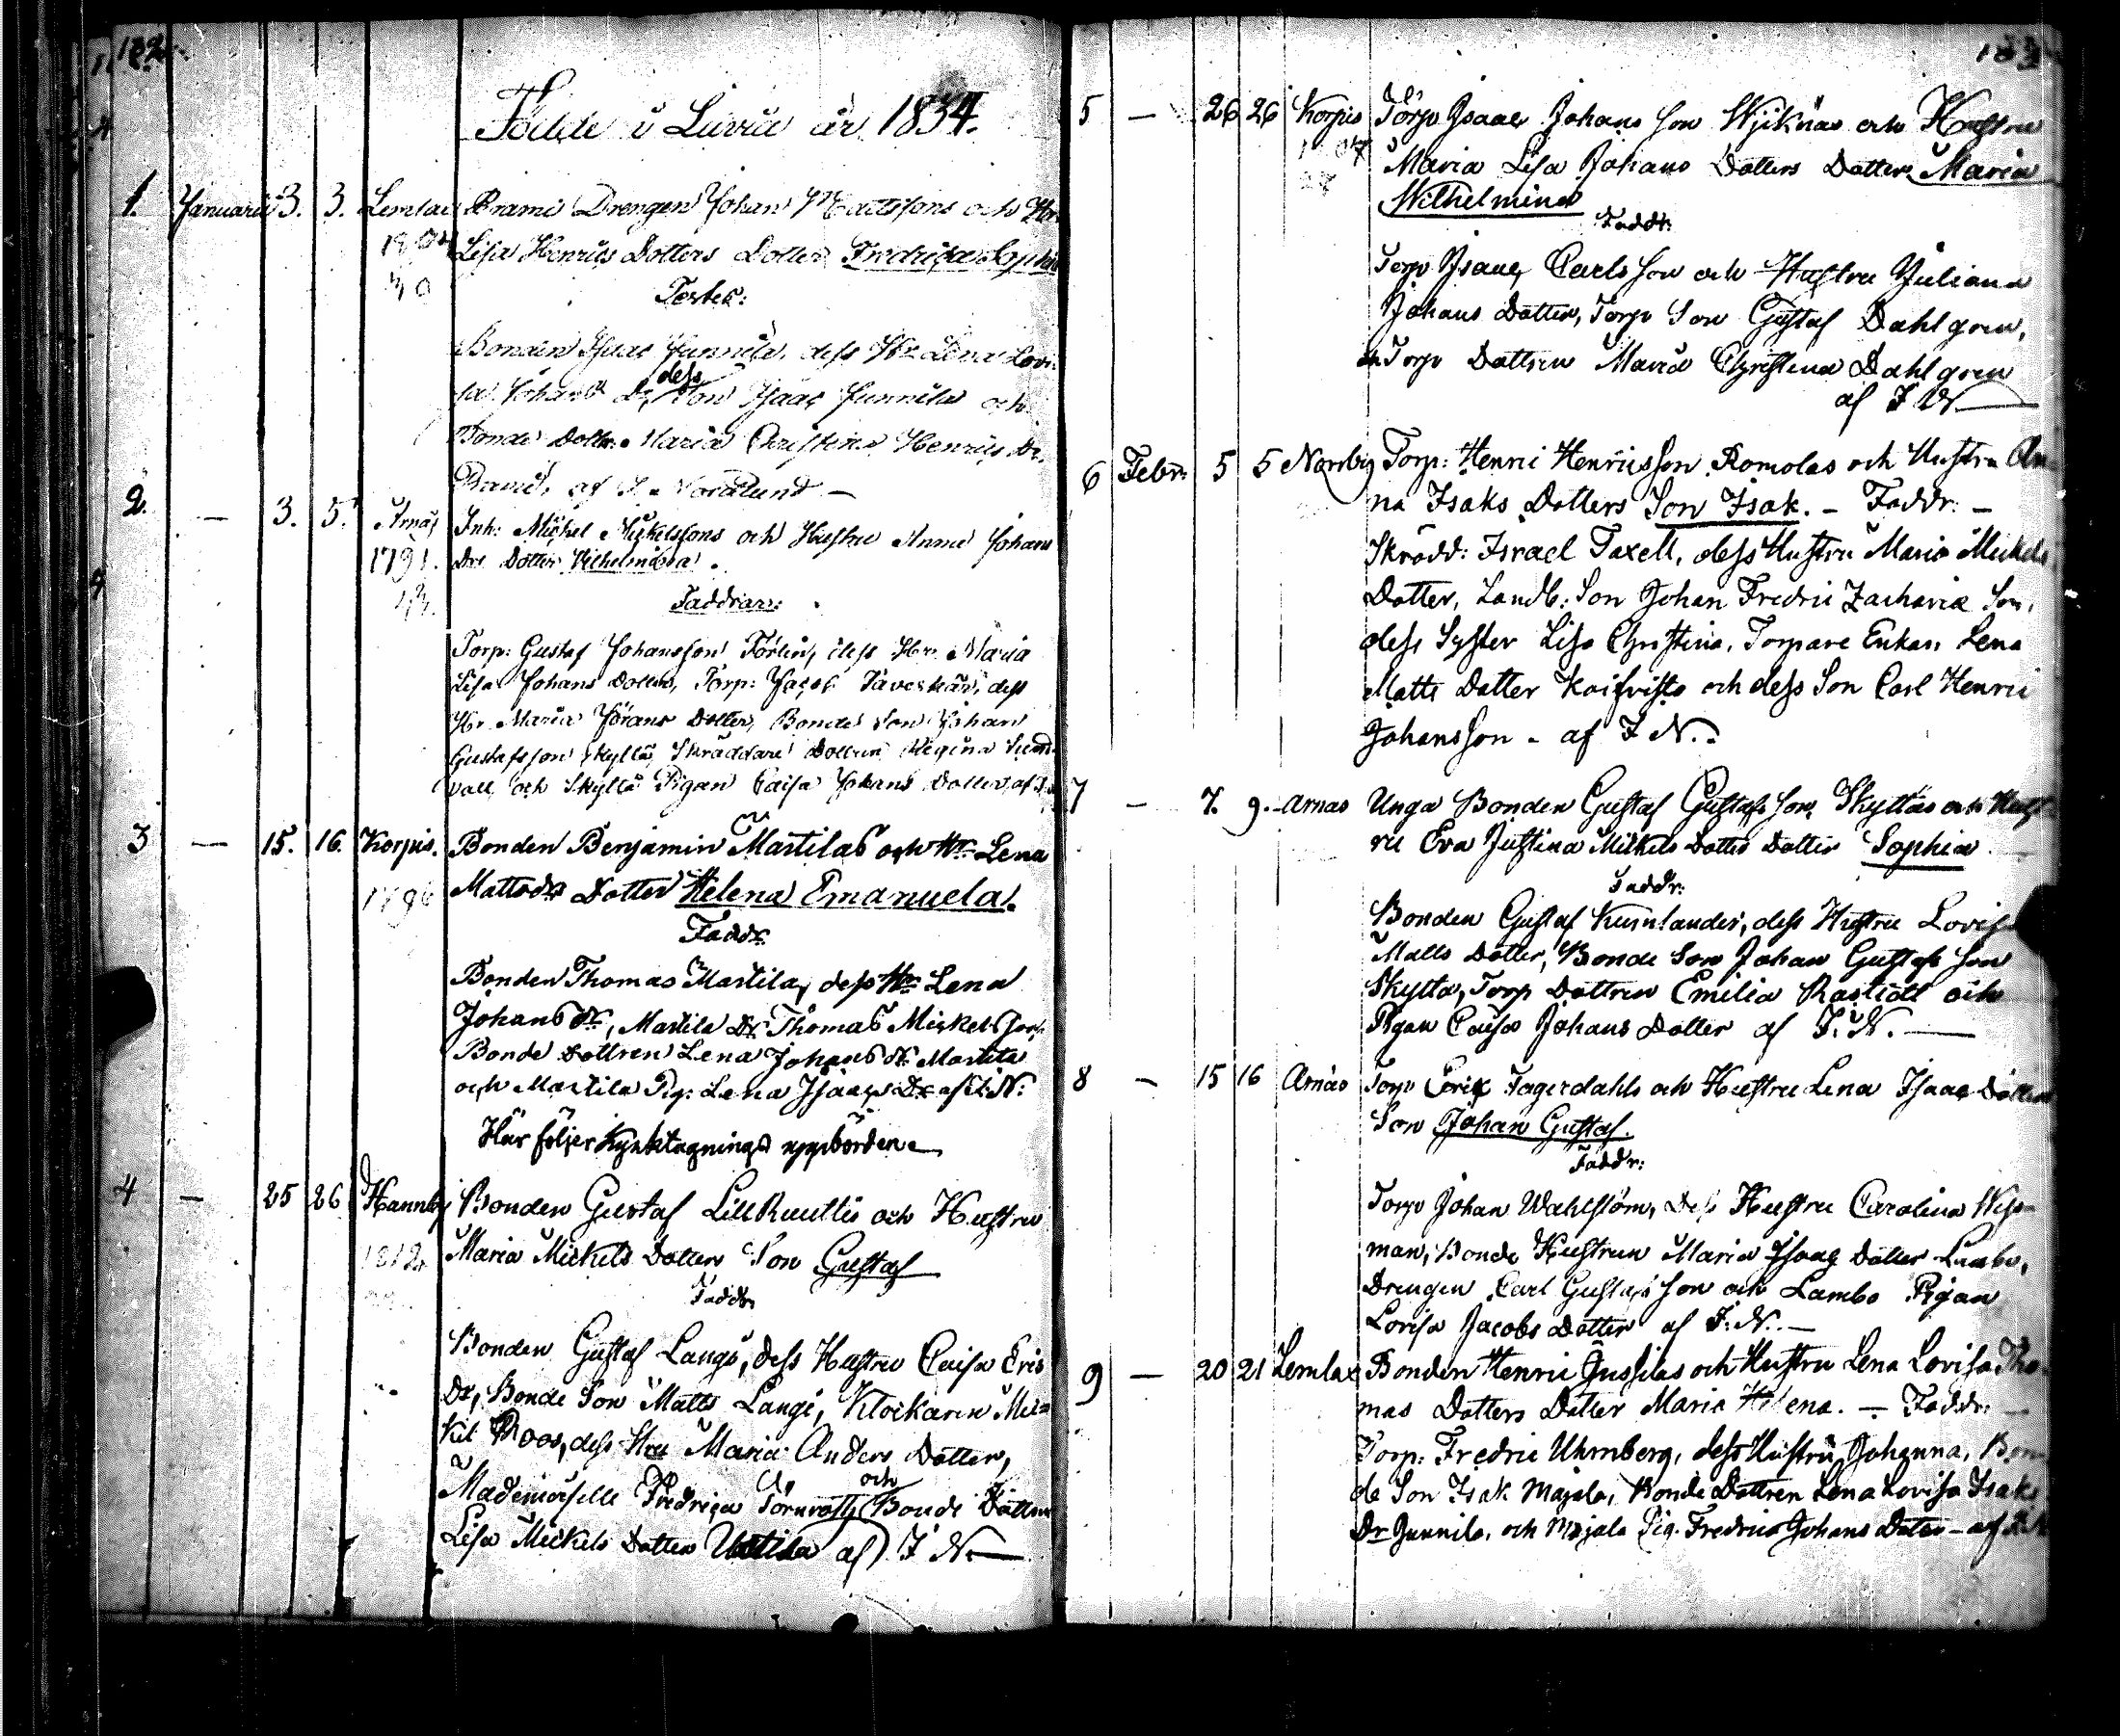 132
Födde i Livia år 1834.
1. Januarii 3. 3. Lemlax Brami Drengen Johan Mattssons och
Lisa Henrics Dotters Dotter Fredrica Sophia
Testes:
Bonden Isaac Junnila, dess Hr Lena Lovi-
sa Johans Dr, dess Son Isaac Junnila och
Bonde Dottr. Maria Christina Henrics Dr.
Brami, af J. Nordlund —
2. — 3. 5. Arnäs Inh: Michel Mickelssons och Hustru Anna Johans
1791. Drs Dotter Vilhelmina.
Faddrar:
Torp: Gustaf Johansson Förlin, dess Hr. Maria
Lisa Johans Dotter, Torp: Jacob Täveskär, dess
Hr. Maria Jörans Dotter, Bonde Son Johan
Gustafsson Skyttä, Skräddare Dottren Regina Sund-
vall och Skyttä Pigan Caisa Johans Dotter, af
3 — 15. 16. Korpis. Bonden Benjamin Martilas och Hr Lena
1796 Mattsdrs Dotter Helena Emanuela.
Faddr
Bonden Thomas Martila, dess Hr Lena
Johans Dr, Martila Dr. Thomas Mickelsson,
Bonde Dottren Lena Johans Dr. Martila
och Martila Pig: Lena Isaacs Dr af J. N.
Här följer Kyrktagnings uppbörden.
4 — 25 26 Hannby Bonden Gustaf Lill Ruuttis och Hustru
1812 Maria Mickels Dotters Son Gustaf
Faddr
Bonden Gustaf Langi, dess Hustru Caisa Eric
Dr, Bonde Son Matts Langi, Klockaren Mic-
kel Roos, dess Hru Maria Anders Dotter,
Mademoiselle Fredrica Törnroth och Bonde Dottren
Lisa Mickels Dotter Uttila af J N.—
5 — 26 26 Korpis Torp Isaac Johans Son Wijknäs och Hustru
Maria Lisa Johans Dotters Dotter Maria
Wilhelmina
Faddr:
Torp Isaac Carls Son och Hustru Juliana
Johans Dotter, Torp Son Gustaf Dahlgren,
Torp Dottren Maria Christina Dahlgren
af J N—
6 Febr: 5 5 Norrby Torp: Henric Henricsson Romolas och Hustru An-
na Isaks Dotters Son Isak. — Faddr: —
Skrädd: Israel Taxell, dess Hustru Maria Mickels
Dotter, Landb: Son Johan Fredric Zachariæ Son,
dess Syster Lisa Christina, Torpare Enkan Lena
Matts Dotter Koifvisto och dess Son Carl Henric
Johansson. af J N.
7 — 7. 9. Arnäs Unga Bonden Gustaf Gustafs Son Skyttäs och Hust-
ru Eva Justina Mickels Dotters Dotter Sophia
Faddr:
Bonden Gustaf Kumlander, dess Hustru Lovisa
Matts Dotter, Bonde Son Johan Gustafs Son
Skyttä, Torp Dottren Emilia Rastedt och
Pigan Caisa Johans Dotter af J. N. —
8 — 15 16 Arnäs Torp Eric Fagerdahls och Hustru Lena Isaac Dotters
Son Johan Gustaf.
Faddr:
Torp Johan Wahlström, Dess Hustru Carolina
man, Bonde Hustrun Maria Isaac Dotter Lambo,
Drengen Carl Gustafs Son och Lambo Pigan
Lovisa Jacobs Dotter af J. N. —
9 — 20 21 Lemlax Bonden Henric Jussilas och Hustru Lena Lovisa Tho-
mas Dotters Dotter Maria Helena. — Faddr: —
Torp: Fredric Uhrnberg, dess Hustru Johanna, Bon-
de Son Isak Majala, Bonde Dottren Lena Lovisa Isaks
Dr Junnila, och Majala Pig. Fredrica Johans Dotter — af J. N